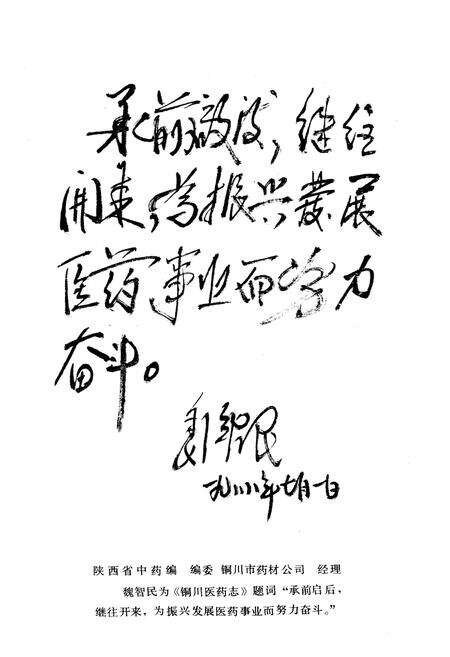 承前啟後，继往
開来，为振兴發展
医药事业而努力
奋斗。
魏智民
一九八八年七月一日
陕西省中药编 编委 铜川市药材公司 经理
魏智民为《铜川医药志》题词“承前启后，
继往开来，为振兴发展医药事业而努力奋斗。”